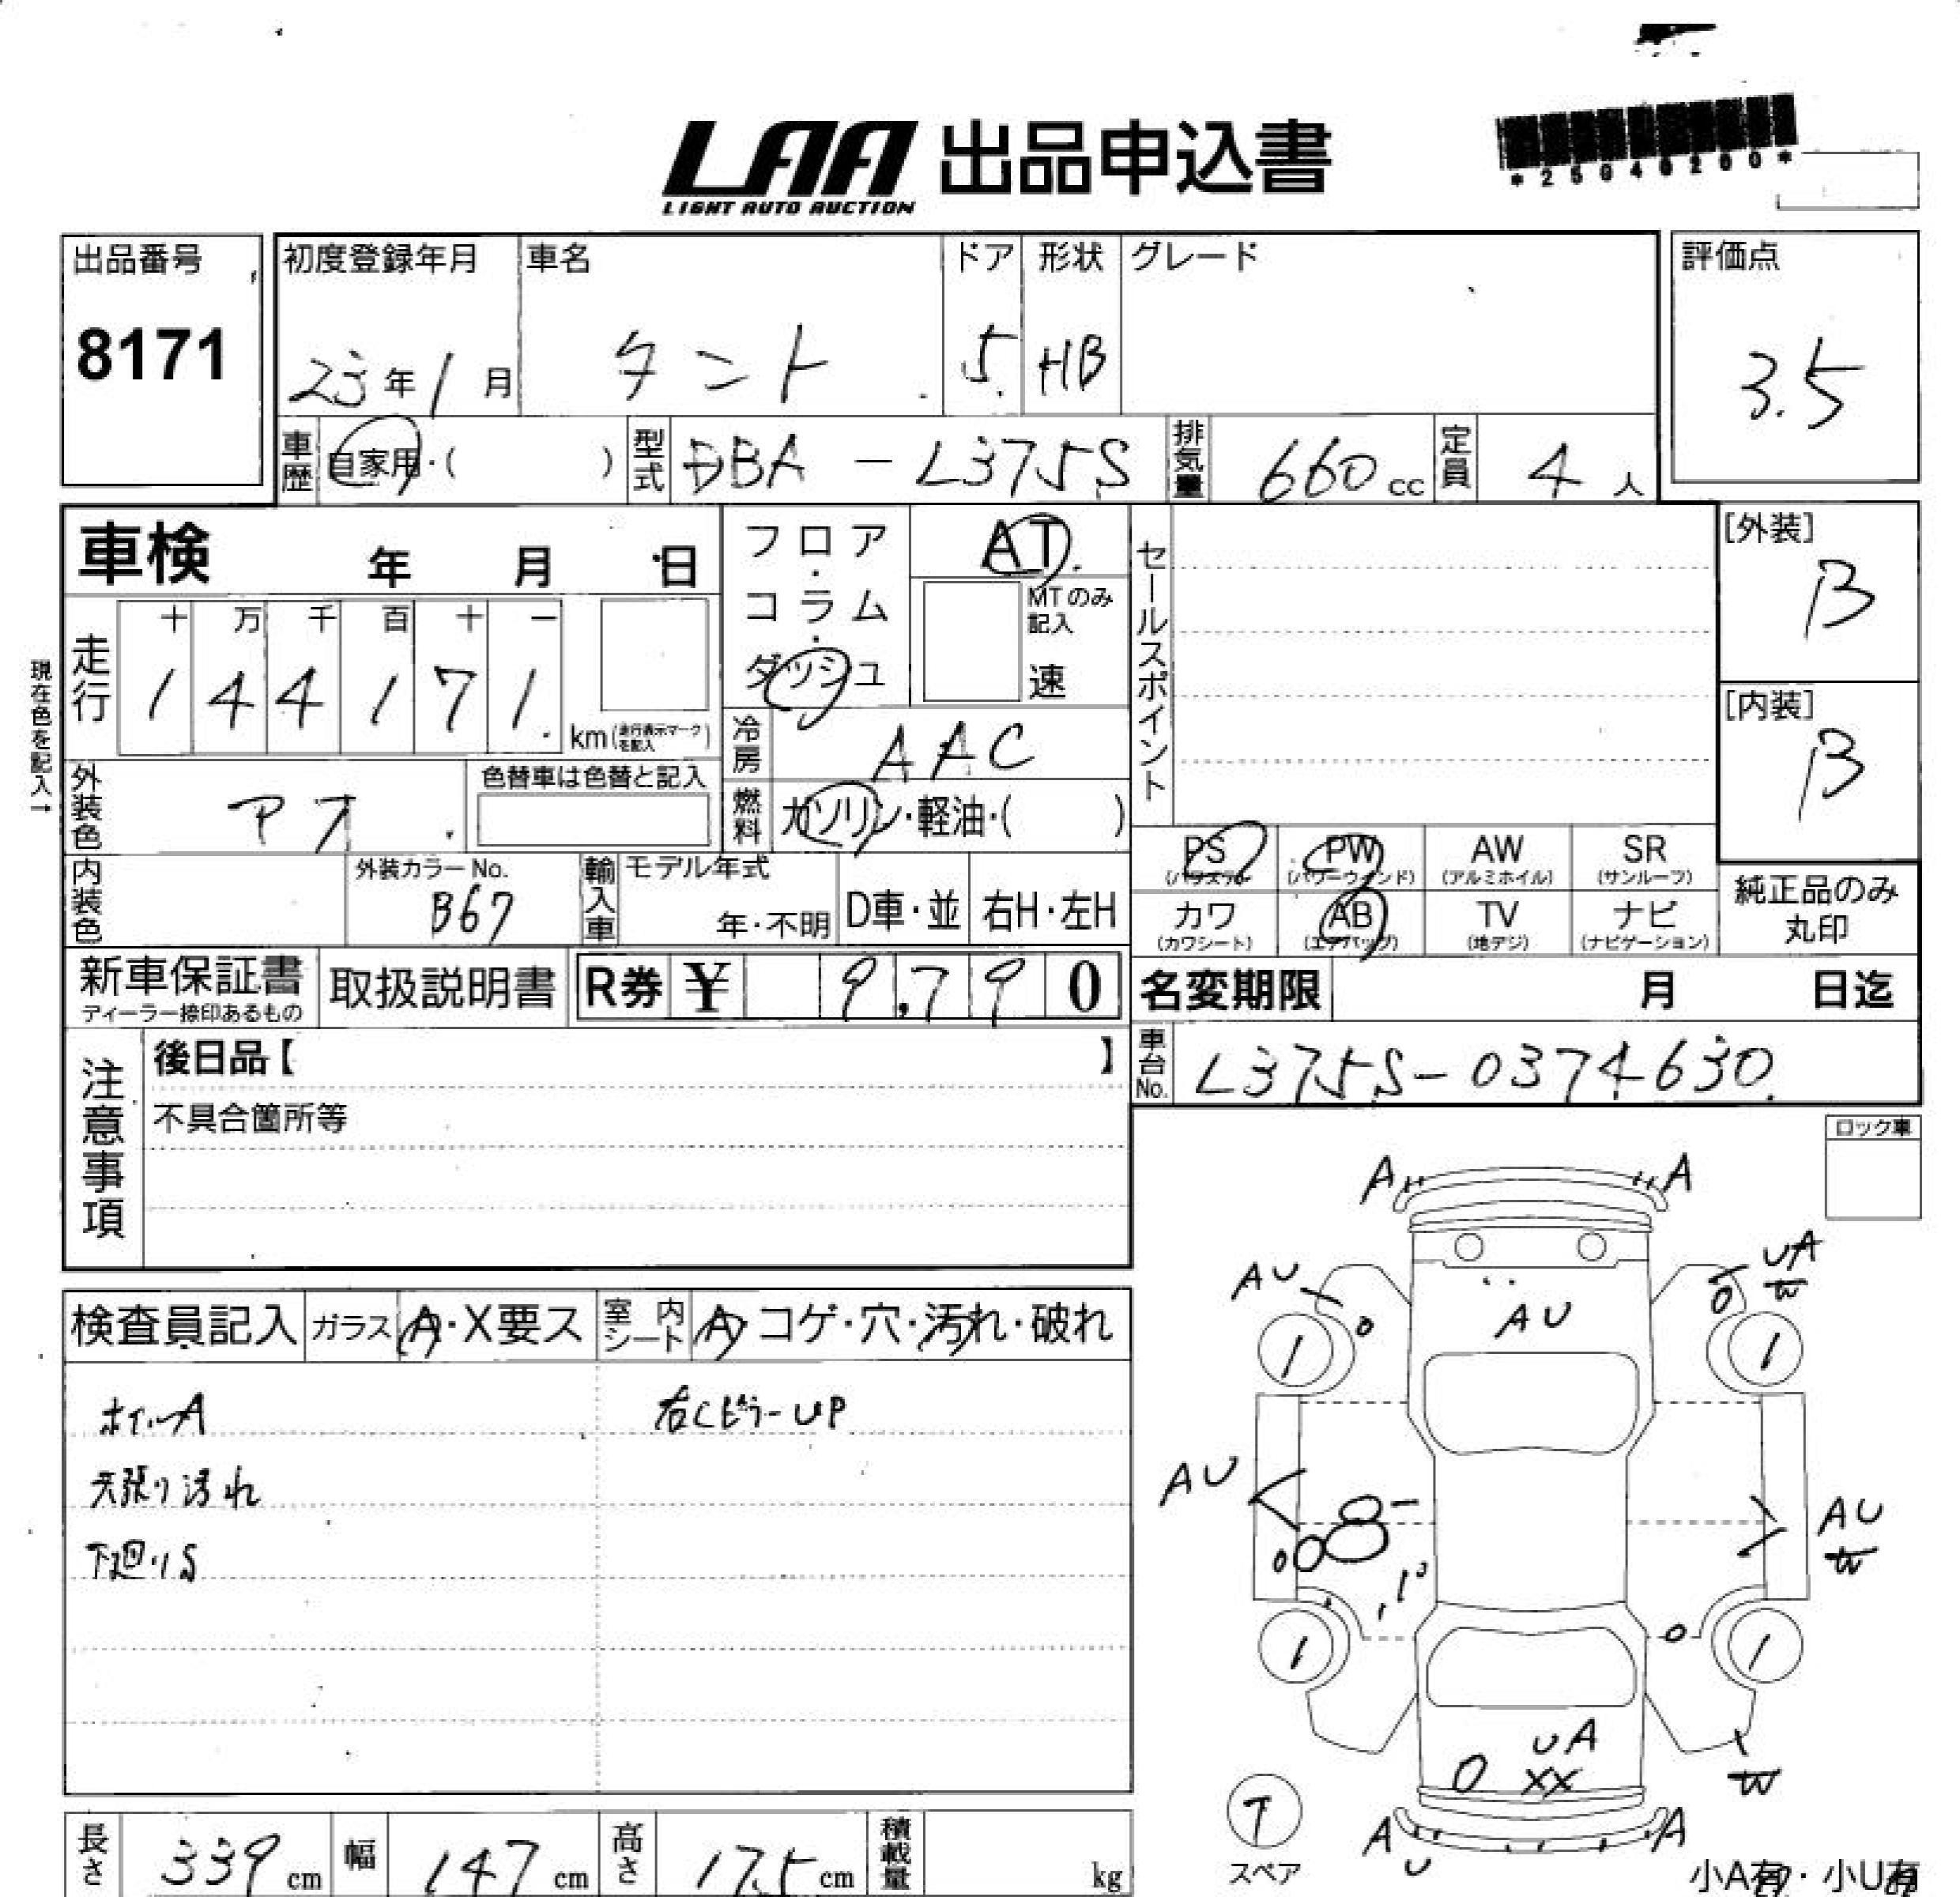 LAA 出品申込書
LIGHT AUTO AUCTION
*25040200*
出品番号
8171
初度登録年月 車名 ドア 形状 グレード
23年1月 タント 5 HB
評価点
3.5
車歴 自家用・( ) 型式 DBA-L375S 排気量 660cc 定員 4人
車検 年 月 日
現在色を記入→
走行 十 万 千 百 十 一
1 4 4 1 7 1
km(走行表示マークを記入)
フロア・コラム・ダッシュ
AT
MTのみ記入
速
冷房 AAC
燃料 ガソリン・軽油・( )
セールスポイント
[外装]
B
[内装]
B
外装色 アオ 色替車は色替と記入
内装色 外装カラーNo. B67
輸入車 モデル年式 年・不明 D車・並 右H・左H
PS (パワステ) PW (パワーウインド) AW (アルミホイル) SR (サンルーフ)
カワ (カワシート) AB (エアバッグ) TV (地デジ) ナビ (ナビゲーション)
純正品のみ
丸印
新車保証書 ディーラー捺印あるもの 取扱説明書 R券 ¥ 9,790
名変期限 月 日迄
車台No. L375S-0374630
注意事項
後日品【 】
不具合箇所等
ロック車
検査員記入 ガラス A・X要ス 室内シート A・コゲ・穴・汚れ・破れ
ホイールA 右Cピラ-UP
天張り汚れ
下廻りS
A A
AU UA
W
AU
1 1
AU AU
W
1 1
UA
XX
W
7
スペア
A A
U
小A有・小U有
長さ 339cm 幅 147cm 高さ 175cm 積載量 kg